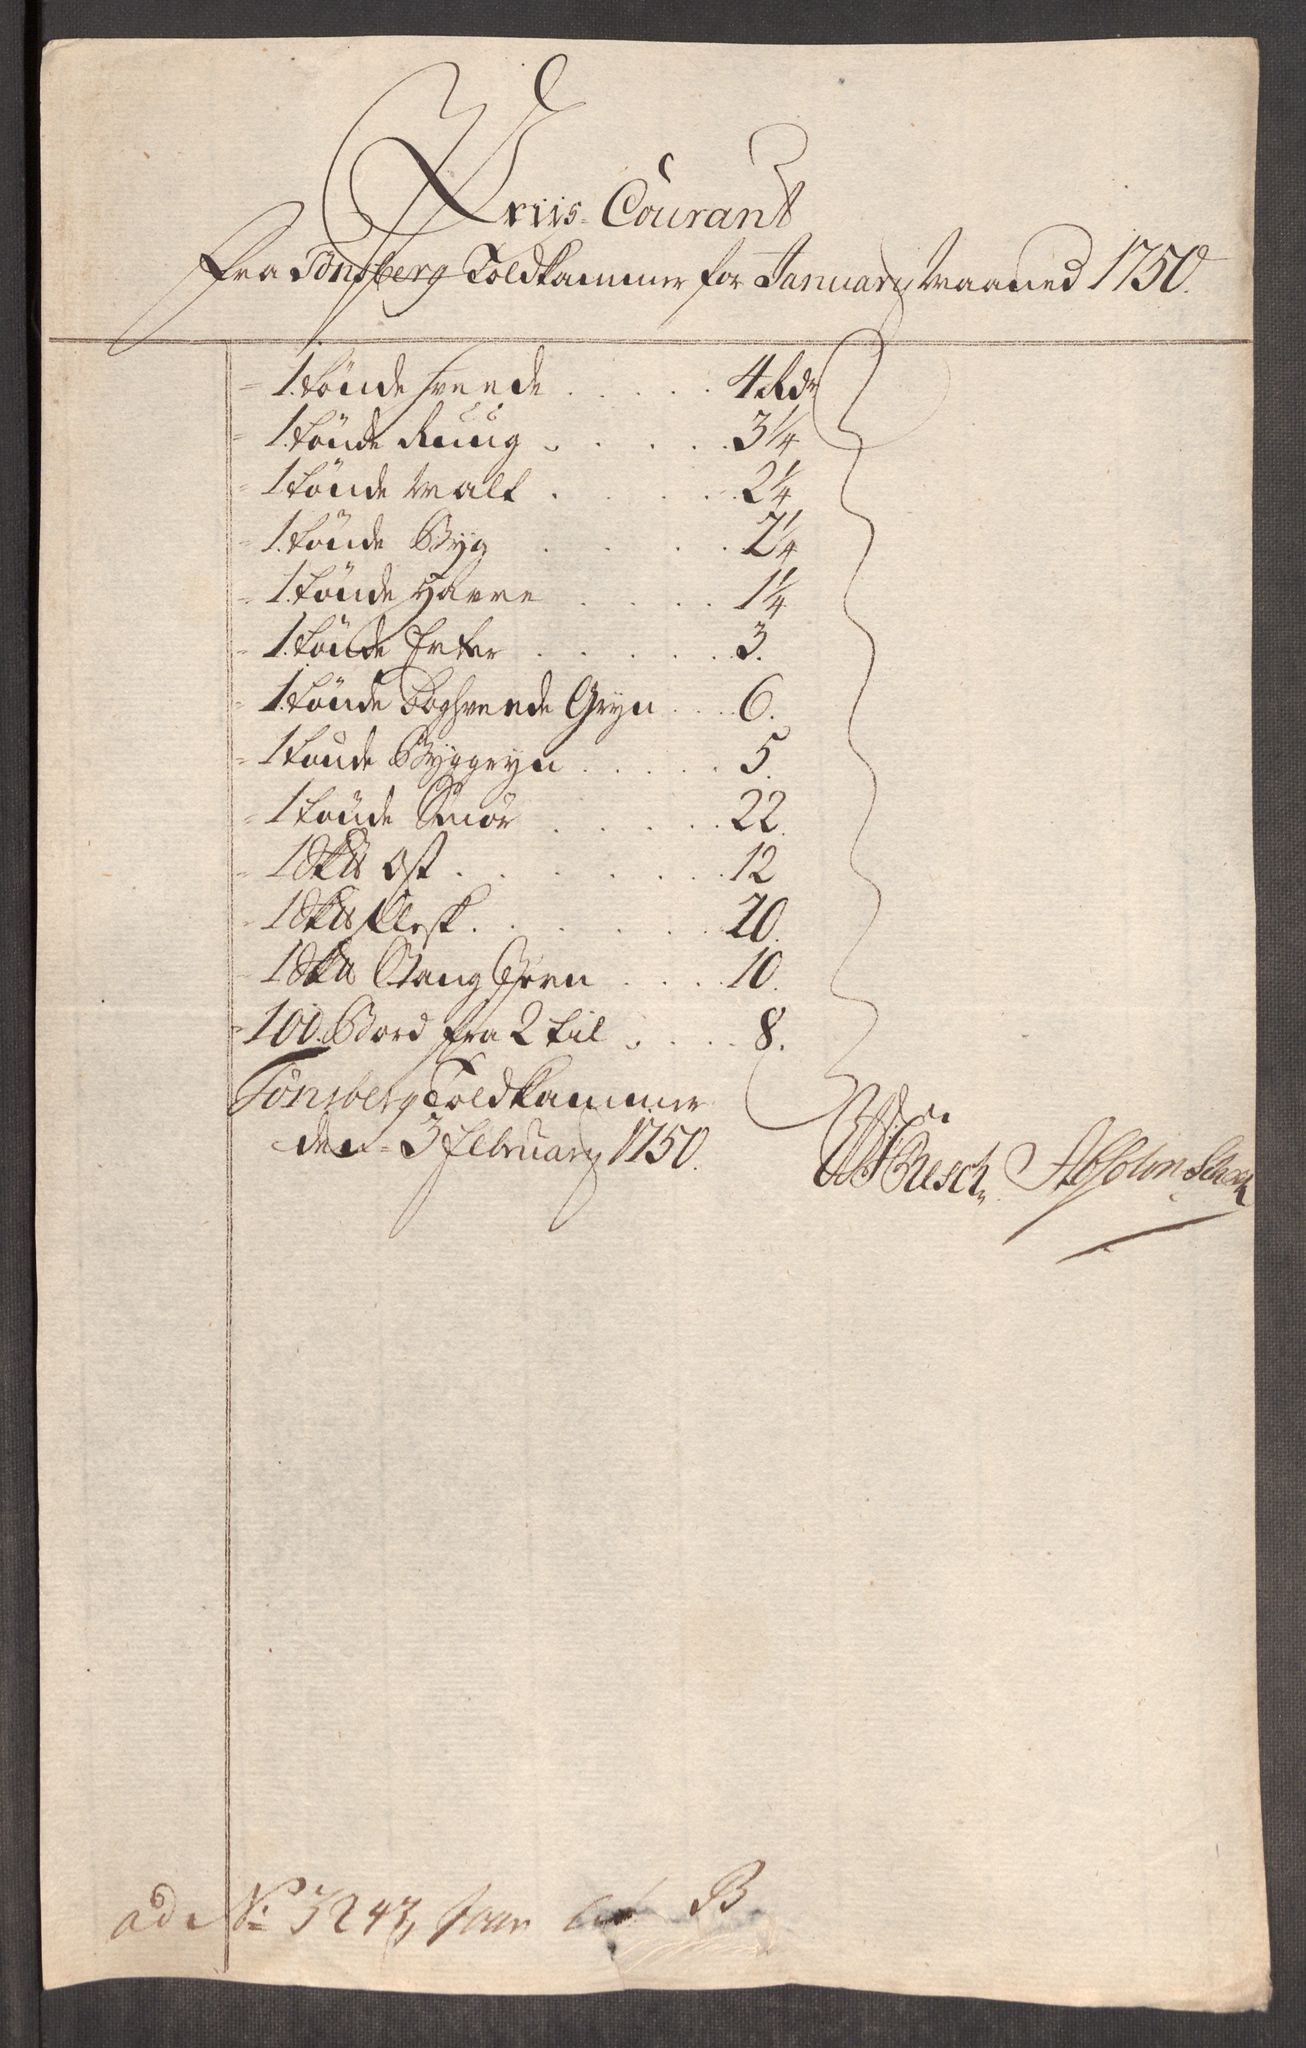 Priis-Courant
fra Tønsberg Toldkammer for January Maaned 1750.
1. tønde hvede . . . . . 4 Rdr
1. tønde Ruug . . . . . 3¼
1. tønde Malt . . . . 2¼
1. tønde Byg . . . . 2¼
1. tønde Havre . . . . 1¼
1. tønde Erter . . . . . 3.
1. tønde Boghvede Gryn . . . 6.
1 tønde Byggryn . . . . . 5.
1 tønde Smør . . . . . 22.
1 Sk℔ Ost . . . . . . . 12
1 Sk℔ flesk . . . . . . . 20.
1 Sk℔ Stang Jern . . . . 10.
100. Bord fra 2 til . . . . 8.
Tønsberg Toldkammer
den 3 february 1750.
Resch Absolon
ad No 3243, B